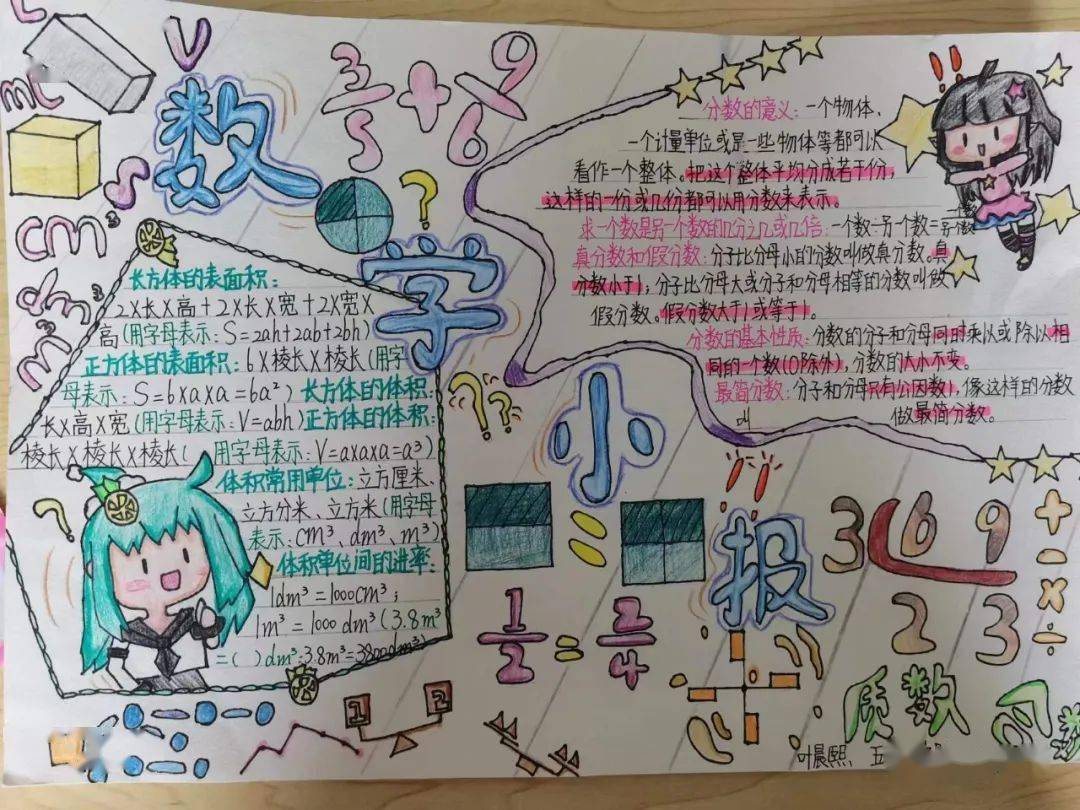 L
mL
V
S
cm³
dm³
m³
数
学
小
报
3/5 + 9/6
?
长方体的表面积:
2×长×高+2×长×宽+2×宽×
高(用字母表示:S=2ah+2ab+2bh)
正方体的表面积:6×棱长×棱长(用字
母表示:S=6×a×a=6a²) 长方体的体积:
长×高×宽(用字母表示:V=abh)正方体的体积:
棱长×棱长×棱长( 用字母表示:V=a×a×a=a³)
体积常用单位:立方厘米、
立方分米、立方米(用字母
表示:cm³、dm³、m³)
体积单位间的进率:
1dm³=1000cm³;
1m³=1000dm³(3.8m³
=( )dm³:3.8m³=3800dm³)
?
??
!!
分数的意义:一个物体、
一个计量单位或是一些物体等都可以
看作一个整体。把这个整体平均分成若干份,
这样的一份或几份都可以用分数来表示。
求一个数是另一个数的几分之几或几倍:一个数÷另一个数=一个数/另一个数
真分数和假分数:分子比分母小的分数叫做真分数。真
分数小于1;分子比分母大或分子和母相等的分数叫做
假分数。假分数大于1或等于1。
分数的基本性质:分数的分子和分母同时乘以或除以相
同的一个数(0除外),分数的大小不变。
最简分数:分子和分母只有公因数1,像这样的分数
叫做最简分数。
!!
=
1/2 = 2/4
3 6 9
2 3
+
-
×
÷
1
2
质数
叶晨熙 五